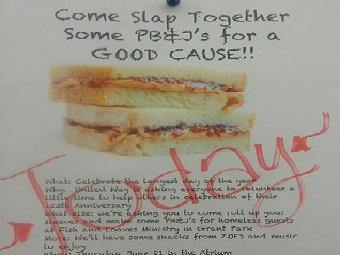 Come Slap Together
Some PB&J's for a
GOOD CAUSE!!
Today
What: Celebrate the longest day of the year
Why: United Way is asking everyone to volunteer a
little time to help others in celebration of their
125th Anniversary
What else: we're asking you to come roll up your
sleeves and make some PB&J's for homeless guests
at Fish and Loaves Ministry in Grant Park
More: We'll have some snacks from ZOES and music
to enjoy
When: Thursday, June 21 in the Atrium